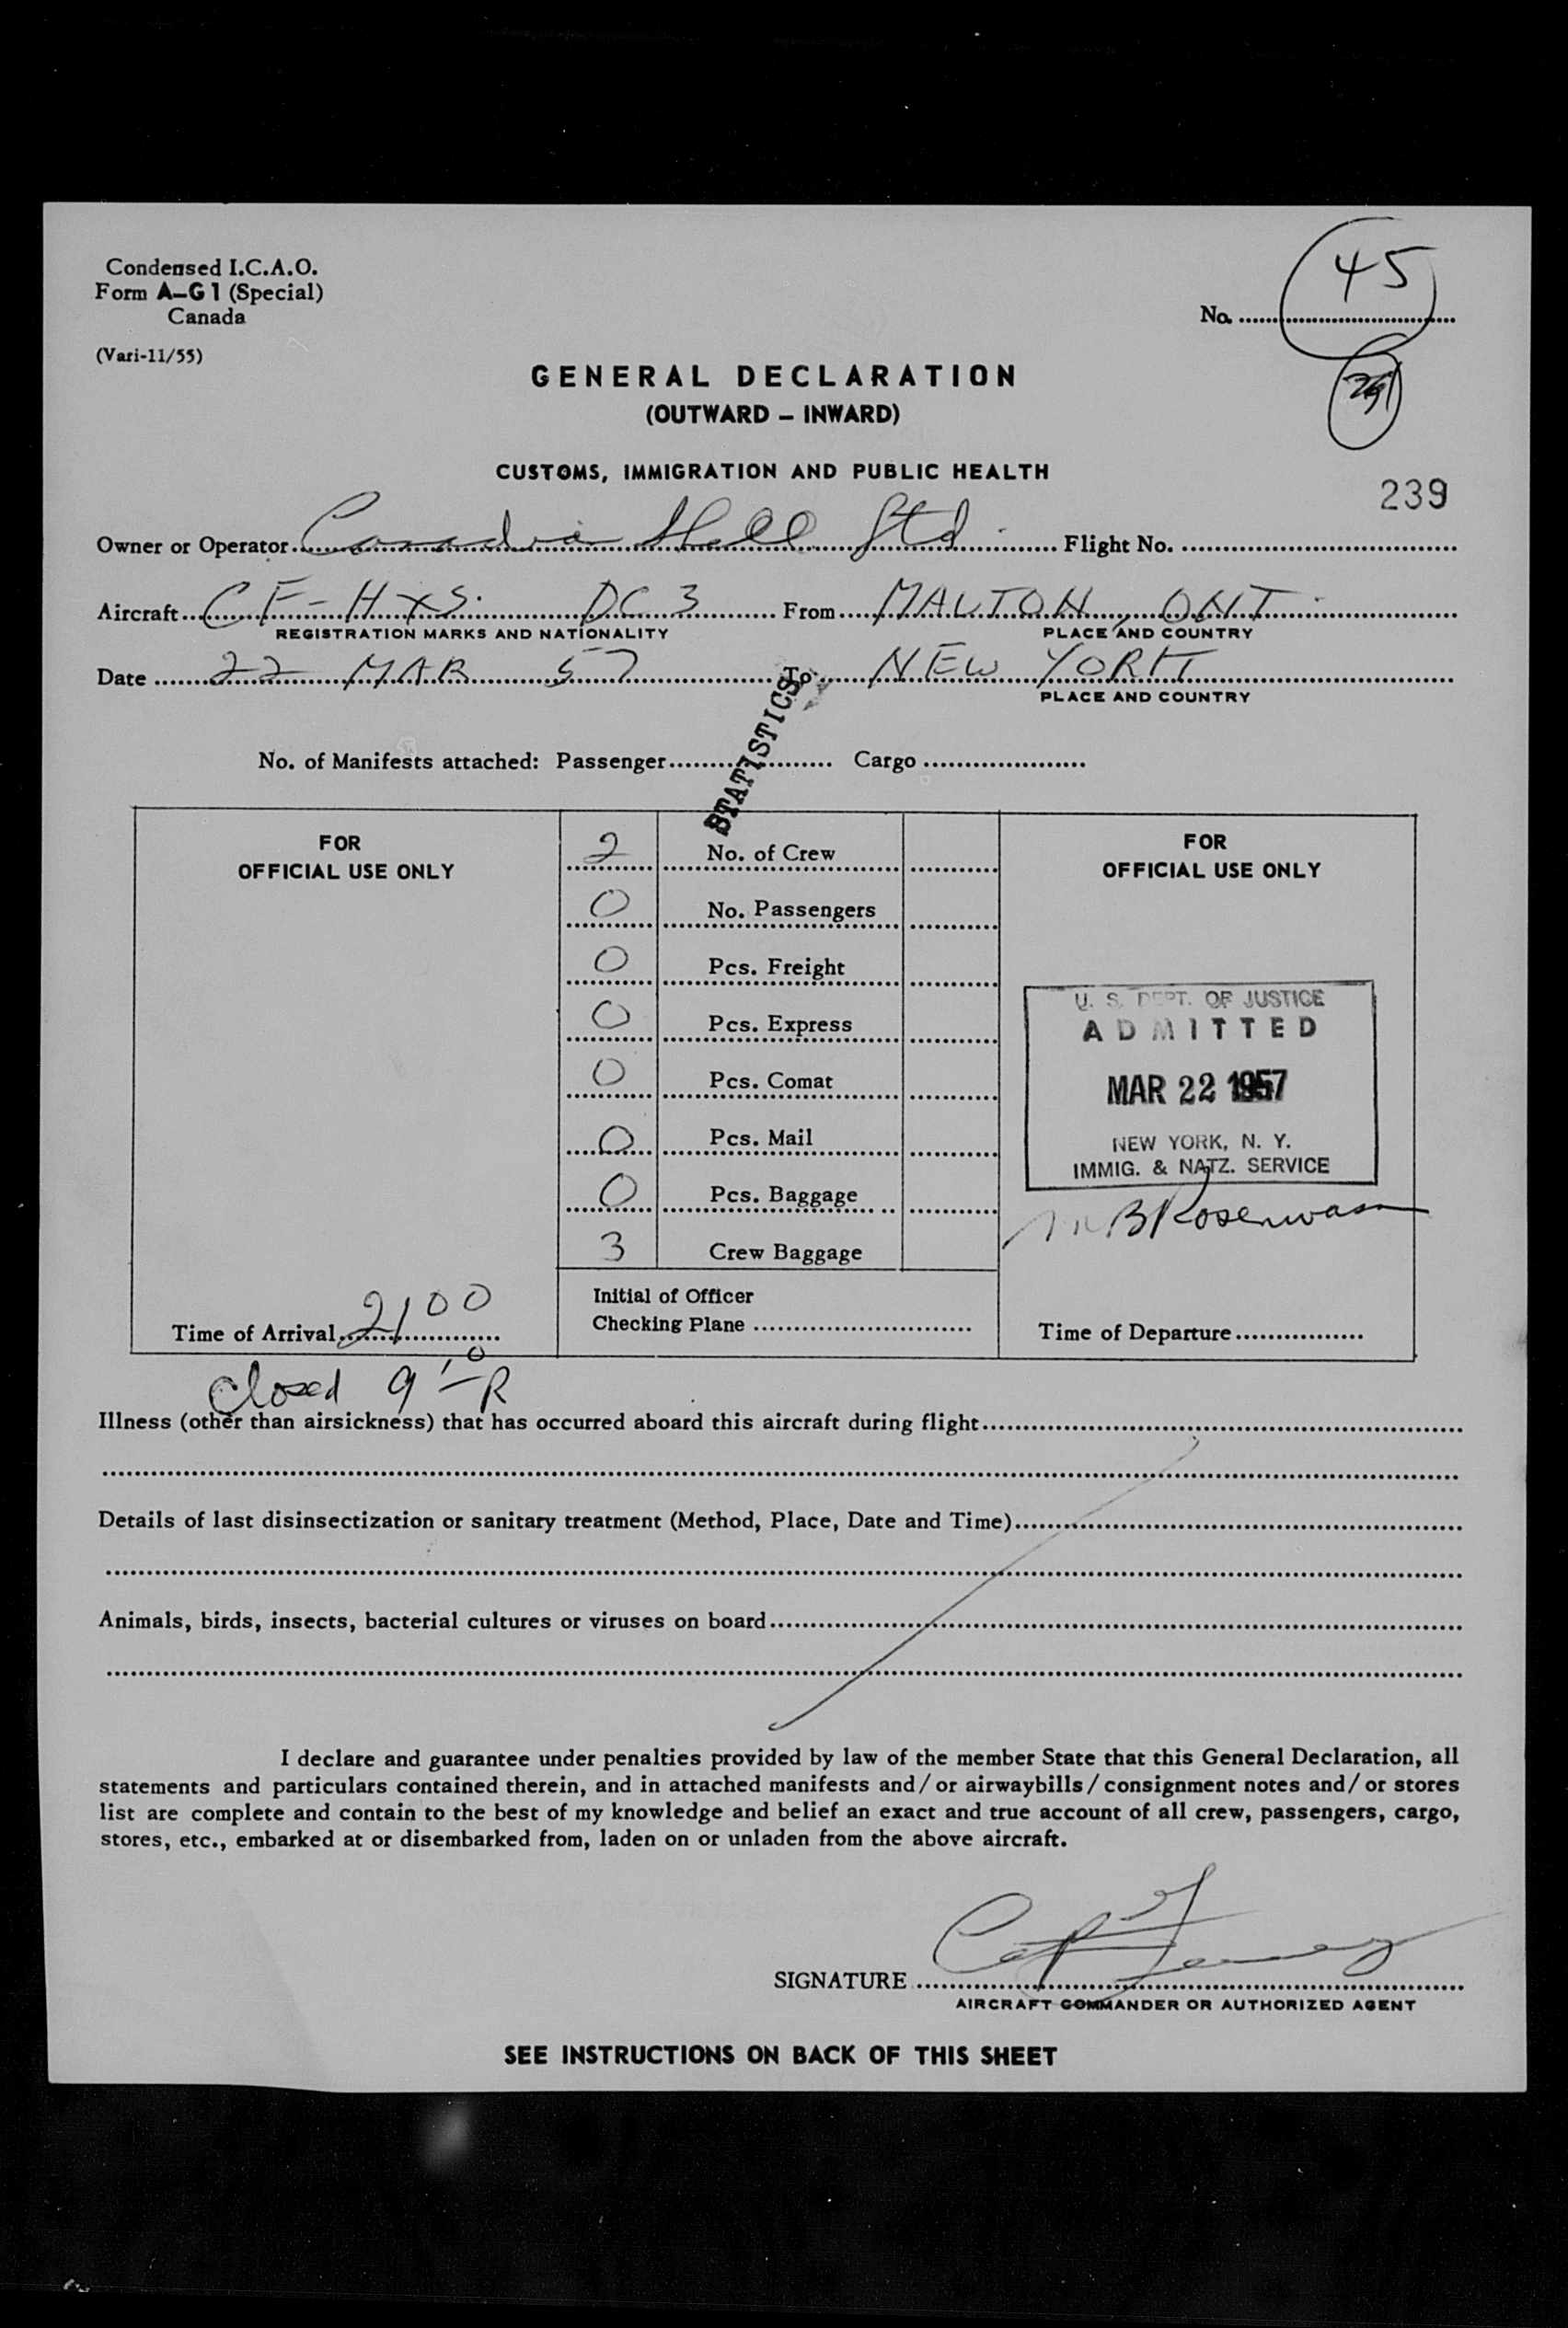 Condensed I.C.A.O.
Form A-G1 (Special)
Canada
(Vari-11/55)
No. 45
GENERAL DECLARATION
(OUTWARD - INWARD)
CUSTOMS, IMMIGRATION AND PUBLIC HEALTH
239
Owner or Operator Shell Ltd Flight No.
Aircraft CF-HXS. DC 3 From MALTON, ONT.
REGISTRATION MARKS AND NATIONALITY PLACE AND COUNTRY
Date 22 MAR 57 To NEW YORK
PLACE AND COUNTRY
STATISTICS
No. of Manifests attached: Passenger Cargo
FOR
OFFICIAL USE ONLY
2 No. of Crew
0 No. Passengers
0 Pcs. Freight
0 Pcs. Express
0 Pcs. Comat
0 Pcs. Mail
0 Pcs. Baggage
3 Crew Baggage
Initial of Officer
Checking Plane
Time of Arrival 2100
closed 9
FOR
OFFICIAL USE ONLY
U. S. DEPT. OF JUSTICE
ADMITTED
MAR 22 1957
NEW YORK, N. Y.
IMMIG. & NATZ. SERVICE
Time of Departure
Illness (other than airsickness) that has occurred aboard this aircraft during flight
Details of last disinsectization or sanitary treatment (Method, Place, Date and Time)
Animals, birds, insects, bacterial cultures or viruses on board
I declare and guarantee under penalties provided by law of the member State that this General Declaration, all
statements and particulars contained therein, and in attached manifests and/or airwaybills/consignment notes and/or stores
list are complete and contain to the best of my knowledge and belief an exact and true account of all crew, passengers, cargo,
stores, etc., embarked at or disembarked from, laden on or unladen from the above aircraft.
SIGNATURE
AIRCRAFT COMMANDER OR AUTHORIZED AGENT
SEE INSTRUCTIONS ON BACK OF THIS SHEET